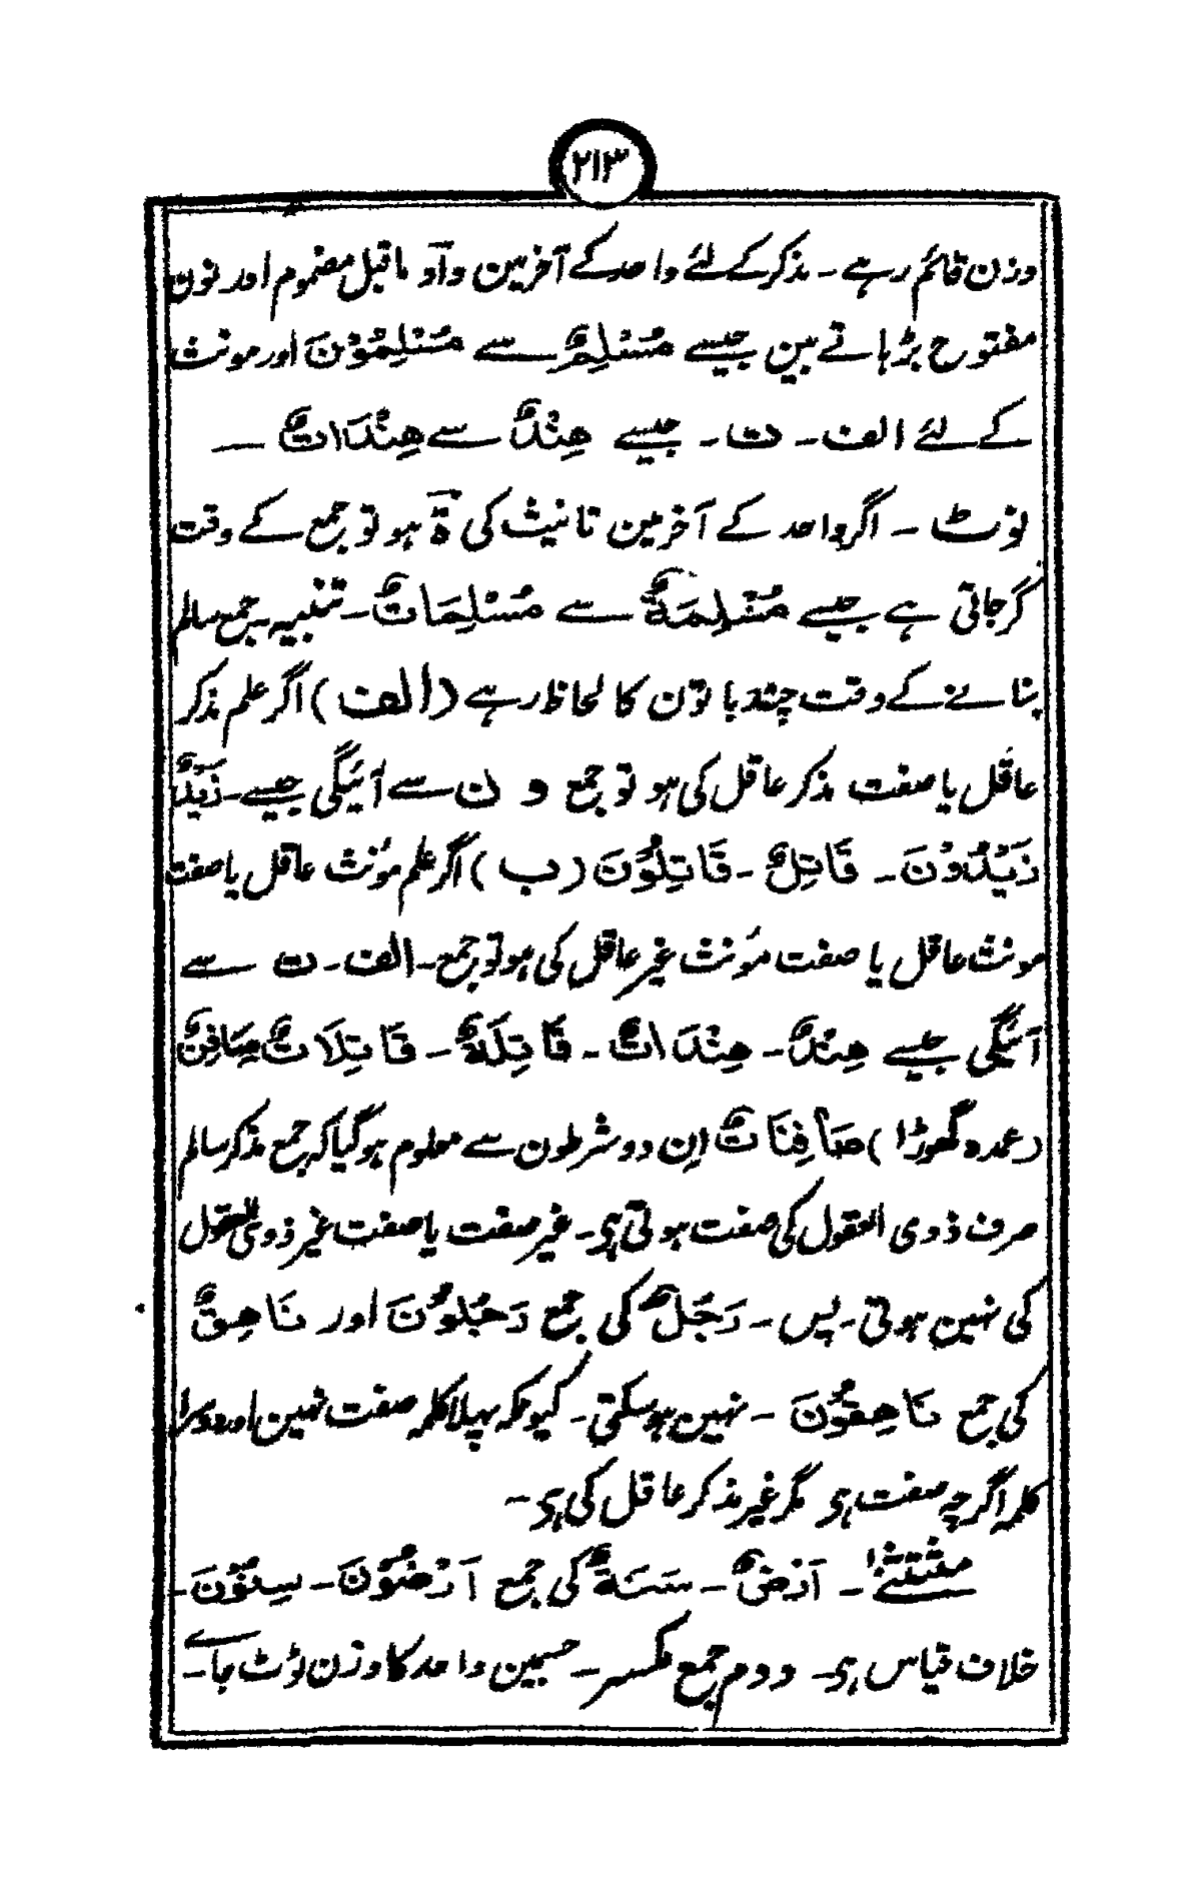 ۲۱۳
وزن قائم رہے ۔ مذکر کے لئے واحد کے آخر مین واو ماقبل مضموم اور نون
مفتوح بڑہاتے ہین جیسے مُسْلِمٌ سے مُسْلِمُوْنَ اور مونث
کے لئے الف ۔ ت ۔ جیسے هِنْدٌ سے هِنْدَاتٌ ۔
نوٹ ۔ اگر واحد کے آخر مین تانیث کی ة ہو تو جمع کے وقت
گر جاتی ہے جیسے مُسْلِمَةٌ سے مُسْلِمَاتٌ ۔ تنبیہ ۔ جمع سالم
بنانے کے وقت چند باتون کا لحاظ رہے (الف) اگر علم مذکر
عاقل یا صفت مذکر عاقل کی ہو تو جمع و ن سے آئیگی جیسے ۔ زَيْدٌ
زَيْدُوْنَ ۔ قَاتِلٌ ۔ قَاتِلُوْنَ (ب) اگر علم مؤنث عاقل یا صفت
مونث عاقل یا صفت مؤنث غیر عاقل کی ہو تو جمع ۔ الف ۔ ت سے
آئیگی جیسے هِنْدٌ ۔ هِنْدَاتٌ ۔ قَاتِلَةٌ ۔ قَاتِلَاتٌ صَافِنٌ
(عمدہ گھوڑا) صَافِنَاتٌ اِن دو شرطون سے معلوم ہو گیا کہ جمع مذکر سالم
صرف ذوی العقول کی صفت ہوتی ہی ۔ غیر صفت یا صفت غیر ذوی العقول
کی نہین ہوتی ۔ پس ۔ رَجُلٌ کی جمع رَجُلُوْنَ اور نَاهِقٌ
کی جمع نَاهِقُوْنَ ۔ نہین ہو سکتی ۔ کیونکہ پہلا کلمہ صفت نہین اور دوسرا
کلمہ اگرچہ صفت ہی مگر غیر مذکر عاقل کی ہی ۔
مستثنےٰ ۔ اَرْضٌ ۔ سَنَةٌ کی جمع اَرْضُوْنَ ۔ سِنُوْنَ ۔
خلاف قیاس ہی ۔ دوم جمع مکسر ۔ جسمین واحد کا وزن ٹوٹ جاے ۔